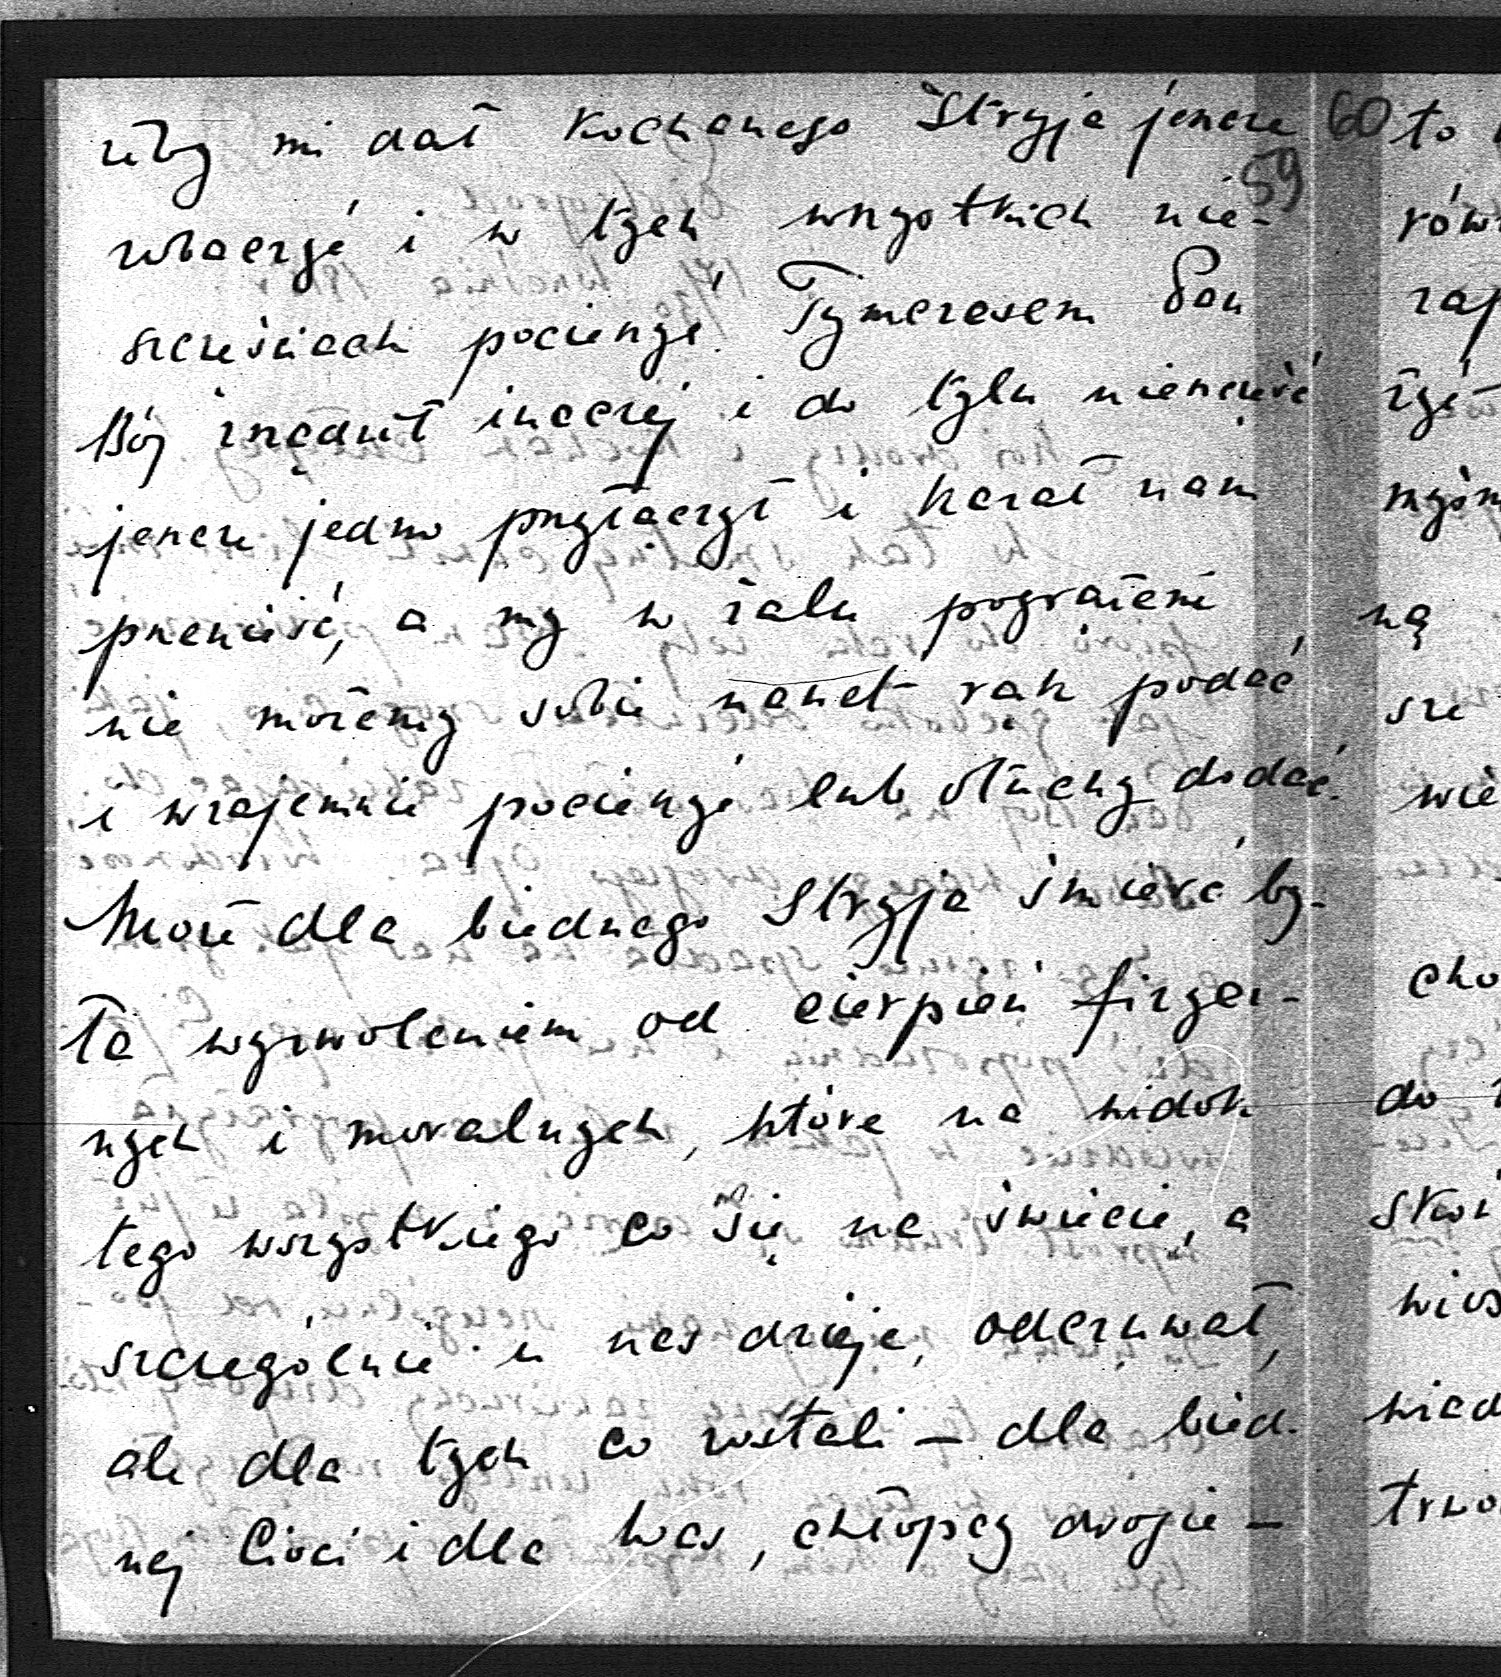 żeby mi dał kochanego Stryja jeszcze
zobaczyć i w tych wszystkich nie-
szczęściach pocieszyć. Tymczasem Pan
Bóg zrządził inaczej i do tylu nieszczęść
jeszcze jedno przyłączył i kazał nam
przenieść, a my w żalu pogrążeni
nie możemy sobie nawet rąk podać,
i wzajemnie pocieszyć lub otuchy dodać.
Może dla biednego Stryja śmierć by-
ła wyzwoleniem od cierpień fizycz-
nych i moralnych, które na widok
tego wszystkiego co się na świecie, a
szczególnie u nas dzieje, odczuwał,
ale dla tych co zostali – dla bied-
nej Cioci i dla Was, chłopcy drogie –
60
59
to
rów
zap
żyć
ną
sze
wie
cho
do
wied